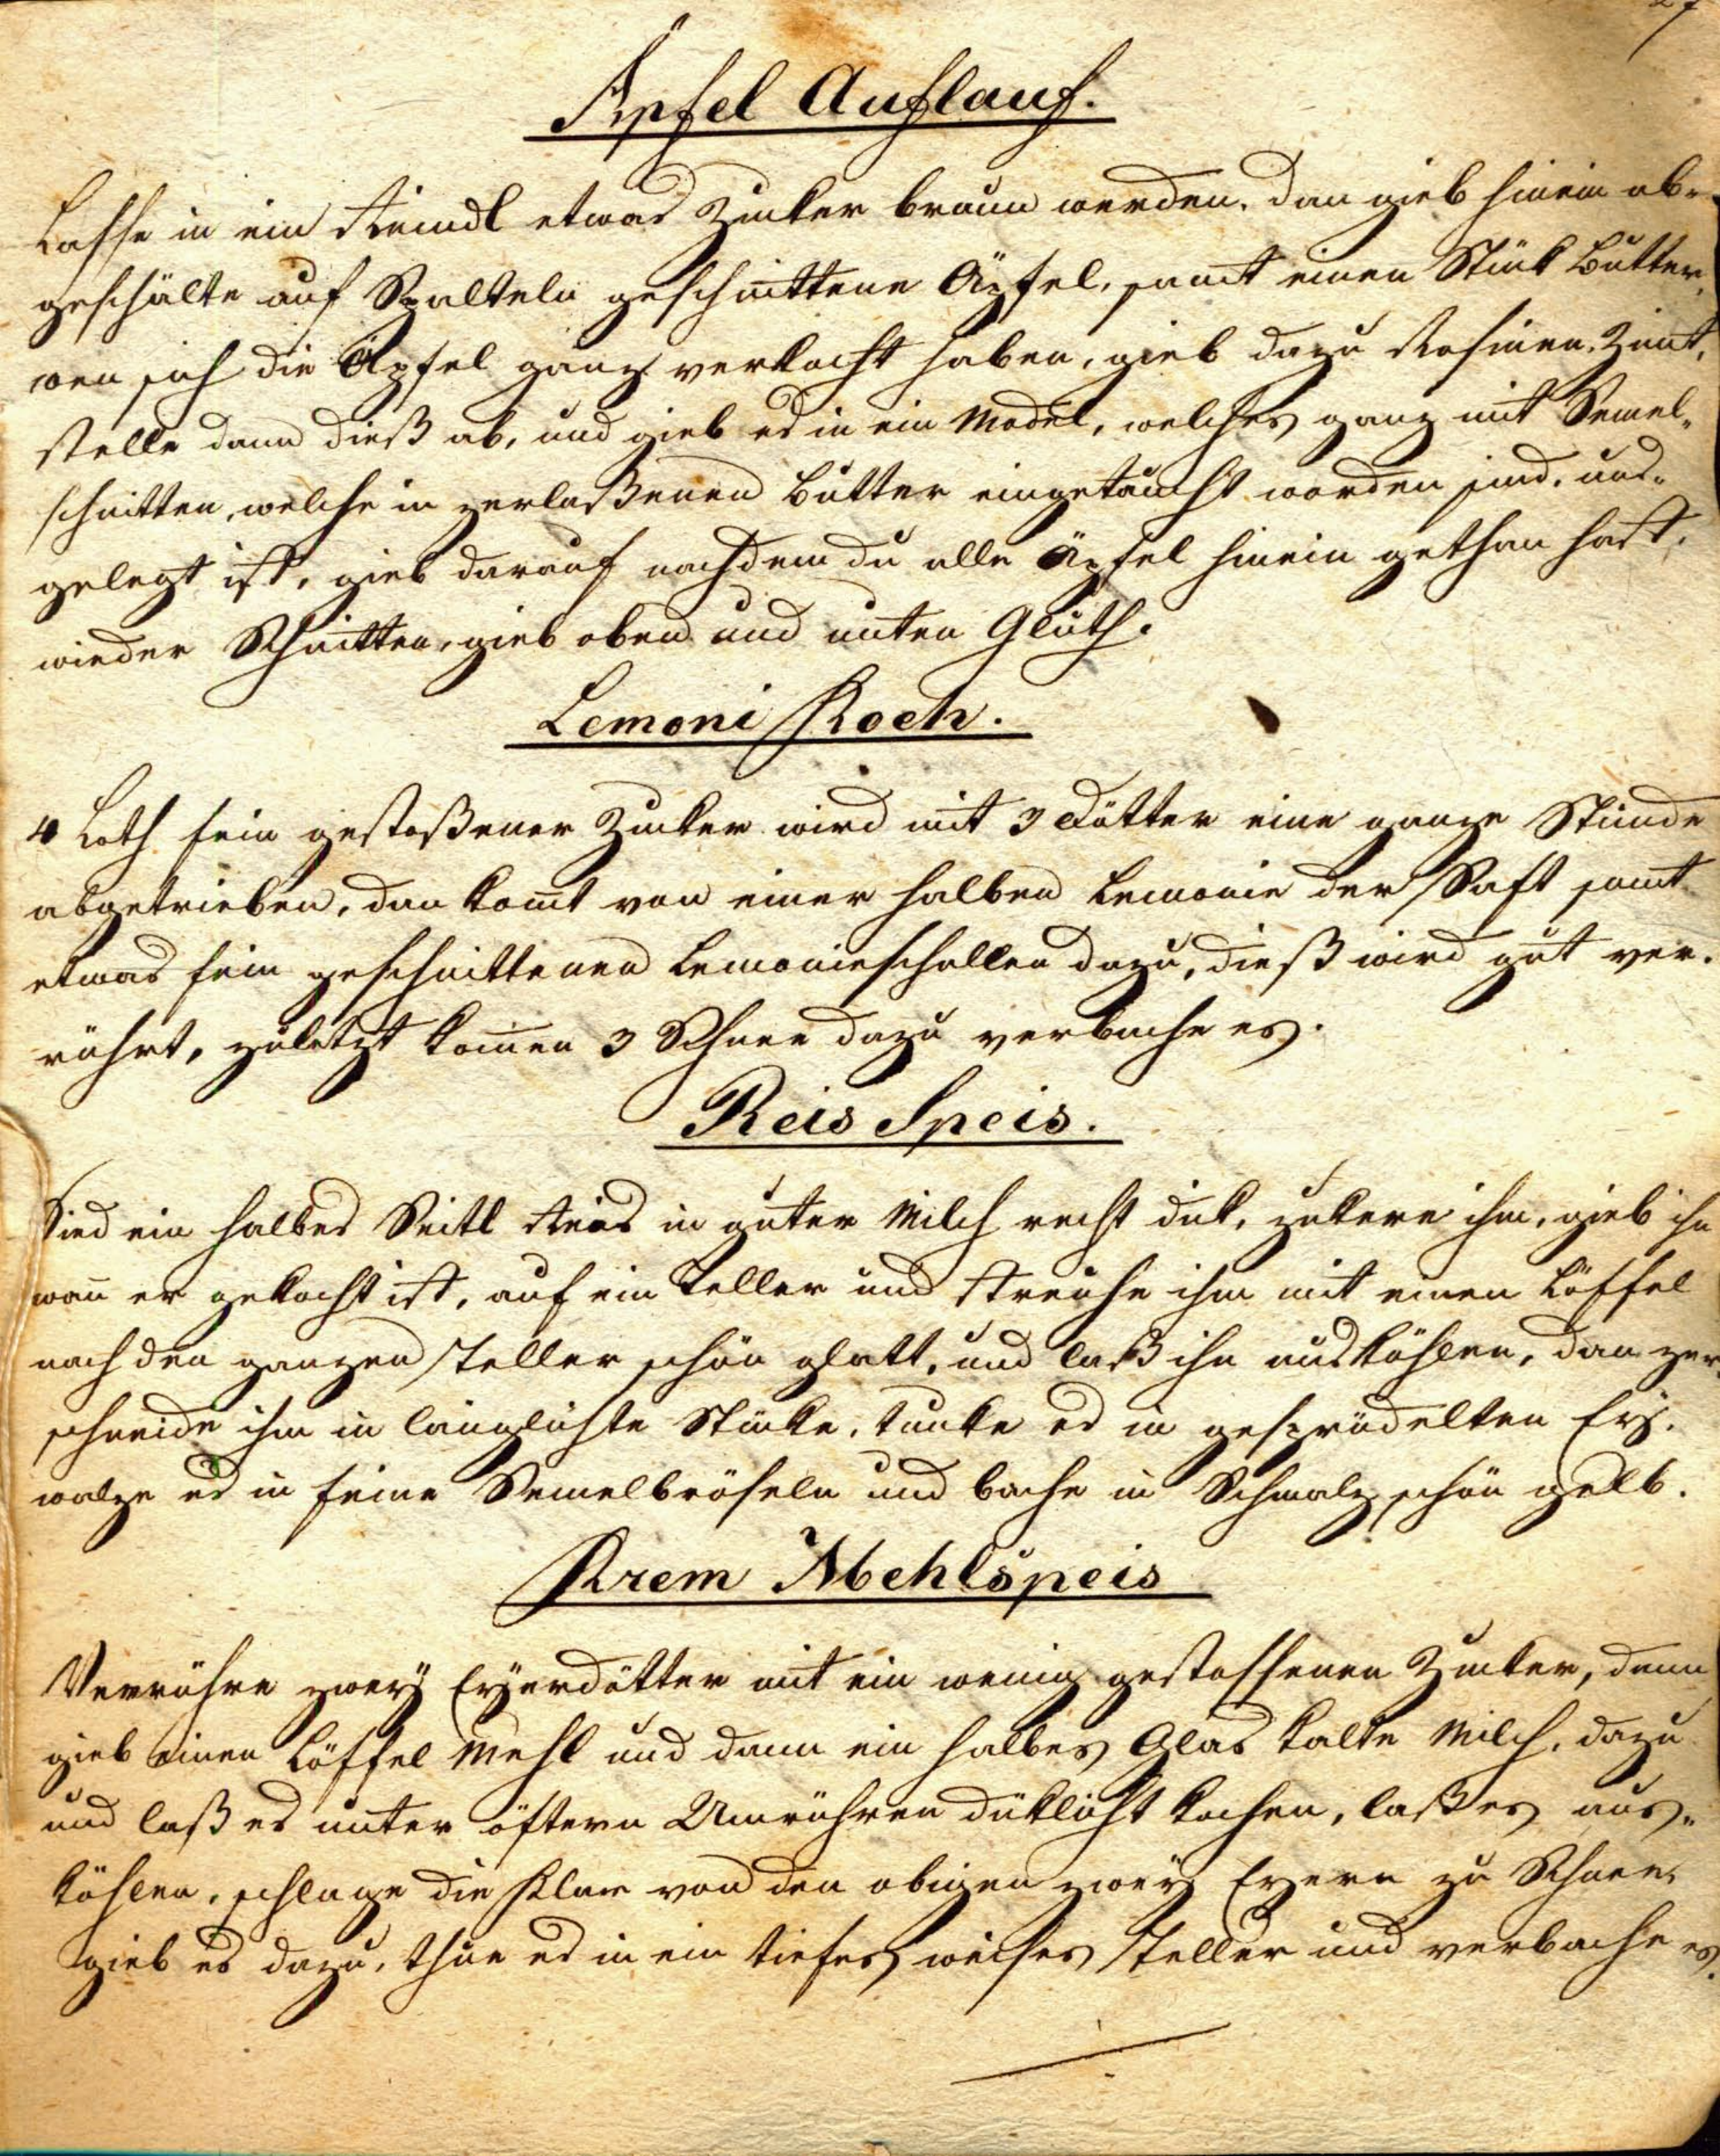 Äpfel Auflauf.
Lasse in ein Reindl etwas Zucker braun werden. dan gieb hinein ab-
geschälte auf Spalteln geschnittene Äpfel, samt einen Stück Butter,
wen sich die Äpfel ganz verkocht haben, gieb dazu Rosinen, Zimt,
stelle dann dieß ab, und gieb es in ein Model, welches ganz mit Semel-
schnitten, welche in zerlaßenen Butter eingetaucht worden sind, aus-
gelegt ist, gieb darauf nachdem du alle Äpfel hinein gethan hast,
wieder Schnitten, gieb oben und unten Gluth.
Lemoni Koch.
4 Loth fein gestoßener Zucker wird mit 3 Dötter eine ganze Stunde
abgetrieben, dan komt von einer halben Lemonie der Saft samt
etwas fein geschnittenen Lemonieschallen dazu, dieß wird gut ver-
rührt, zuletzt komen 3 Schnee dazu verbache es.
Reis Speis.
Sied ein halbes Seitl Reis in guter Milch recht dick, zukere ihm, gieb ihn
wan er gekocht ist, auf ein Teller und streiche ihm mit einen Löffel
nach den ganzen Teller schön glatt, und laß ihn auskühlen, dan zer-
schneide ihm in länglichte Stücke, tunke es in gesprüdelten Ey.
walze es in feine Semelbröseln und bache in Schmalz schön gelb.
Krem Mehlspeis
Verrühre zwey Eyerdötter mit ein wenig gestossenen Zucker, dann
gieb einen Löffel Mehl und dann ein halbes Glas kalte Milch, dazu
und laß es unter öftern Umrühren düklicht kochen, laß es aus-
kühlen, schlage die Klar von den obigen zwey Eyern zu Schnee,
gieb es dazu, thue es in ein tiefes weises Teller und verbache es.